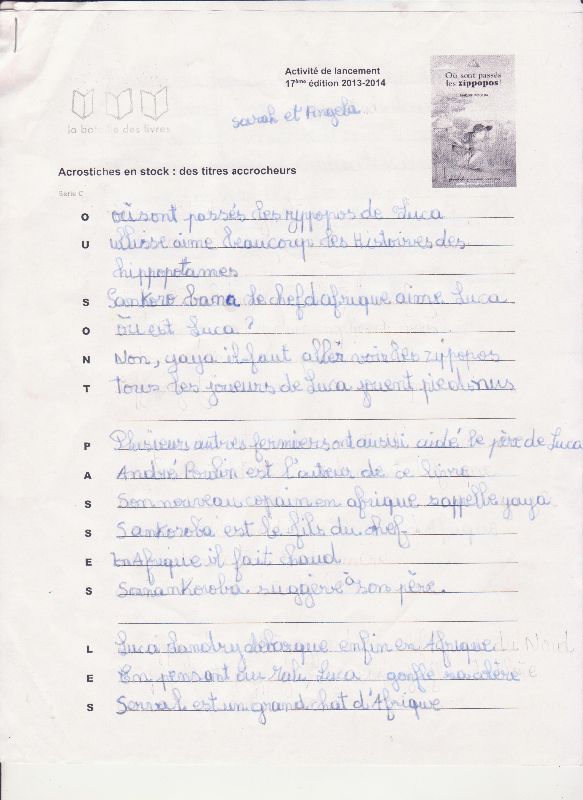 Activité de lancement
17ème édition 2013-2014
Où sont passés
les zippopos?
la bataille des livres
Sarah et Angela
Acrostiches en stock : des titres accrocheurs
Serie C
O où sont passés les zyppopos de Luca
U ullisse aime beaucoup les Histoires des
hippopotames
S Sankoro bana le chef d'afrique aime Luca
O Où est Luca ?
N Non, yaya il faut aller voir les zypopos
T Tous les joueurs de Luca jouent pied nus
P Plusieur autres fermiers ont aussi aidé le père de Luca
A André Poulin est l'auteur de ce livre
S Son nouveau copain en afrique s'appelle yaya
S Sankoroba est le fils du chef
E En Afrique il fait chaud
S Sannankoroba suggère à son père.
L Luca Landry débarque enfin en Afrique
E En pensant au Mali Luca gonfle sa colère
S Serval est un grand chat d'Afrique